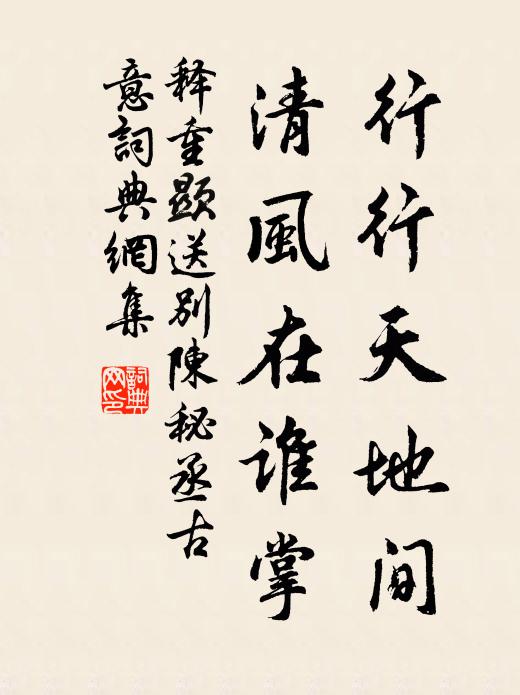 行行天地间
清風在谁掌
释重顯送别陳秘丞古
意詞典網集
詞典網印